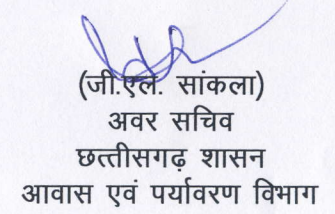 (जी.एल. सांकला)
अवर सचिव
छत्तीसगढ़ शासन
आवास एवं पर्यावरण विभाग